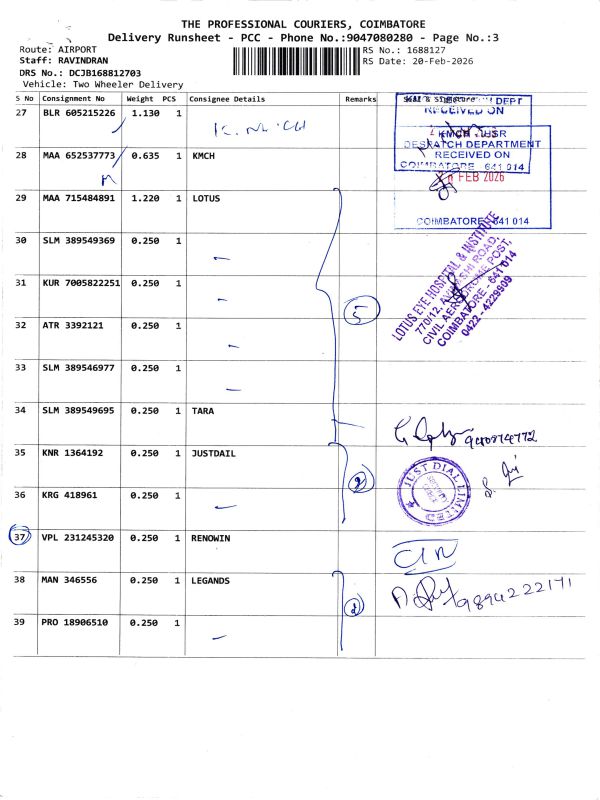 THE PROFESSIONAL COURIERS, COIMBATORE
Delivery Runsheet - PCC - Phone No.:9047080280 - Page No.:3
Route: AIRPORT
RS No.: 1688127
Staff: RAVINDRAN
RS Date: 20-Feb-2026
DRS No.: DCJB168812703
Vehicle: Two Wheeler Delivery
S No Consignment No Weight PCS Consignee Details Remarks Seal & Signature
27 BLR 605215226 1.130 1 K.M.CH
DEPT
RECEIVED ON
KMCH
DESPATCH DEPARTMENT
RECEIVED ON
COIMBATORE 641 014
28 MAA 652537773 0.635 1 KMCH
FEB 2026
29 MAA 715484891 1.220 1 LOTUS
COIMBATORE 641 014
30 SLM 389549369 0.250 1 -
31 KUR 7005822251 0.250 1 -
5
LOTUS EYE HOSPITAL & INSTITUTE
770/12, AVINASHI ROAD,
CIVIL AERODROME POST,
COIMBATORE - 641 014
0422 - 4229909
32 ATR 3392121 0.250 1 -
33 SLM 389546977 0.250 1 -
34 SLM 389549695 0.250 1 TARA
35 KNR 1364192 0.250 1 JUSTDAIL
2
JUST DIAL LIMITED
36 KRG 418961 0.250 1 -
37 VPL 231245320 0.250 1 RENOWIN
38 MAN 346556 0.250 1 LEGANDS
2
9894222171
39 PRO 18906510 0.250 1 -